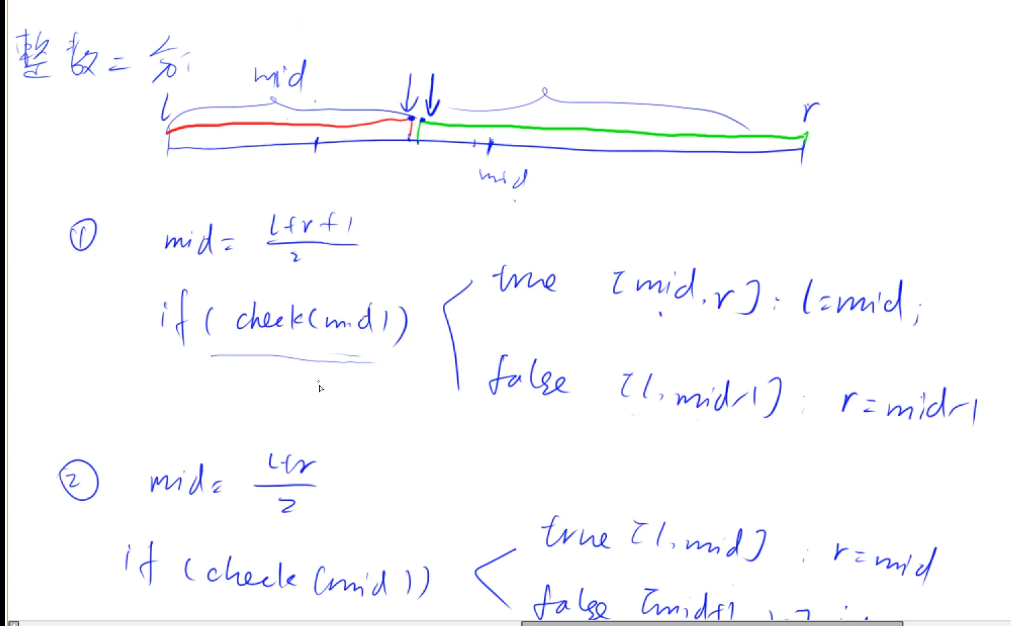 整数二分
mid
l r
mid
① mid = l+r+1 / 2
if ( check(mid) )
true [mid, r] : l=mid;
false [l, mid-1] : r=mid-1
② mid = l+r / 2
if ( check (mid) )
true [l, mid] : r=mid
false [mid+1